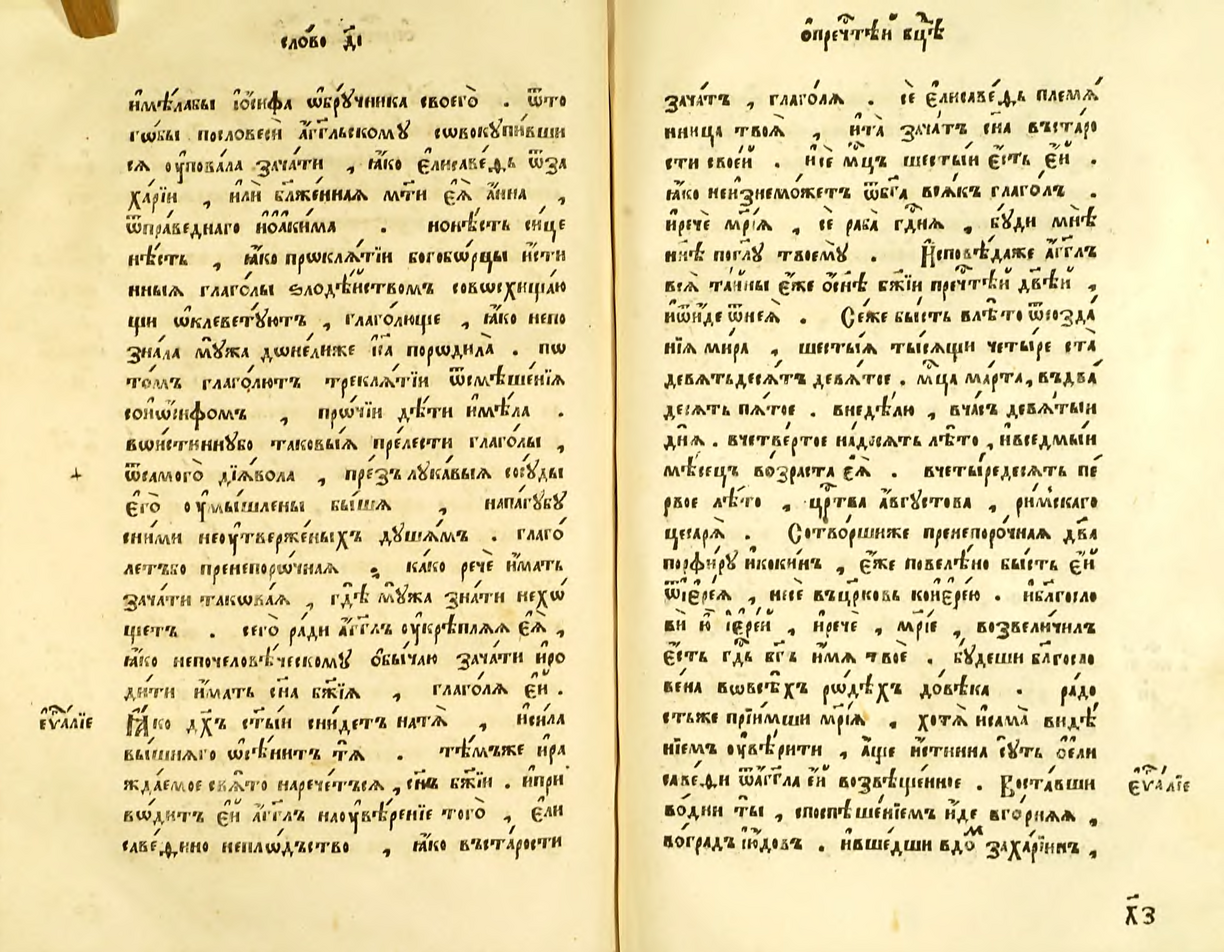 сло́во д҃і
и҆мѣ́лабы і҆ѡ́сифа ѡ҆брꙋ́чника своегѡ̀ . ѿто
гѡ̀бы пословесѝ а҆́гг҃льскомꙋ совокꙋпи́вши
сѧ ᲂу҆пова́ла зача́ти , ꙗ҆́кѡ є҆лисаве́ѳь ѿза
ха́рїи , и҆лѝ бл҃же́ннаѧ мт҃и є҆ѧ̀ а҆́нна ,
ѿпра́веднаго и҆оаки́ма . нонѣ́сть си́це
нѣ́сть , ꙗ҆́ко проклѧ́тїи богобѡ́рцы и҆́сти
нныѧ глаго́лы ѕлодѣ́йствомъ совосхища́ю
щи ѡ҆клевета́ютъ , глаго́люще , ꙗ҆́ко непо
зна́ла мꙋ́жа до́нелиже сн҃а породила̀ . по
то́мъ глаго́лютъ треклѧ́тїи ѿсмѣше́нїѧ
сои҆ѡ́сифомъ , про́чїи дѣ́ти и҆мѣ́ла .
вои́стиннꙋбо таковы́ѧ пре́лести глаго́лы ,
ѿсамого̀ дїѧ́вола , пре́зъ лꙋка́выѧ сосꙋ́ды
є҆го̀ ᲂу҆мы́шлены бы́шѧ , напа́гꙋбꙋ
сни́ми неᲂу҆твержены́хъ дꙋша́мъ . глаго́
летъбо пренепоро́чнаѧ , ка́ко речѐ и҆́мать
зача́ти такова́ѧ , гдѣ̀ мꙋ́жа зна́ти нехо́
щетъ . сего̀ ра́ди а҆́гг҃лъ ᲂу҆крѣплѧ́ѧ є҆ѧ̀ ,
ꙗ҆́ко непочеловѣ́ческомꙋ ѡ҆бы́чаю зача́ти и҆ро
ди́ти и҆́мать сн҃а бж҃їѧ , глаго́лѧ є҆́й .
є҆ѵⷢ҇а́лїе
Ꙗ҆́ко дх҃ъ ст҃ы́й сни́детъ натѧ̀ , и҆си́ла
вы́шнѧго ѡ҆сѣни́тъ тѧ̀ . тѣ́мъже и҆ра
жда́емое свѧ́то нарече́тьсѧ , сн҃ъ бж҃їи . и҆при
во́дитъ є҆́й а҆́гг҃лъ наᲂу҆вѣре́нїе того̀ , є҆ли
саве́ѳино непло́дъство , ꙗ҆́ко въста́рости
ѡ҆пречⷭ҇тѣ́й вц҃ѣ
зача́тъ , глаго́лѧ . сѐ є҆лисаве́ѳь племѧ́
нница твоѧ̀ , и҆та̀ зача́тъ сн҃а въстаро
сти свое́й . и҆сѐ мц҃ъ шесты́й є҆́сть є҆́й .
ꙗ҆́ко неи҆знемо́жетъ ѿбг҃а всѧ́къ глаго́лъ .
и҆речѐ мр҃і́ѧ , сѐ раба̀ гдⷭ҇нѧ , бꙋ́ди мнѣ̀
нн҃ѣ погл҃ꙋ твоемꙋ̀ . И҆сповѣ́даже а҆́гг҃лъ
всѧ̀ та́йны є҆́же ѡ҆сн҃ѣ бж҃їи пречⷭ҇тѣ́й дв҃ѣ́й ,
и҆ѿи́де ѿнеѧ̀ . Се́же бы́сть влѣ́то ѿсозда́
нїѧ ми́ра , шесты́ѧ ты́сѧщи четы́ре ста̀
де́вѧтьдесѧтъ девѧ́тое . мц҃а ма́рта , въдва́
десѧть пѧ́тое . внедѣ́лю , вча́съ девѧ́тый
днѧ̀ . вчетве́ртое на́десѧть лѣ́то , и҆вседмы́й
мѣ́сецъ во́зраста є҆ѧ̀ . вчеты́редесѧть пе́
рвое лѣ́то , црⷭ҇тва а҆́вгꙋстова , ри́мскаго
цесарѧ̀ . Сотво́ршиже пренепоро́чнаѧ дв҃а
порфи́рꙋ и҆коки́нъ , є҆́же повелѣ́но бы́сть є҆́й
ѿі҆ере́ѧ , несѐ въцр҃ковь кои҆ере́ю . и҆благосло
вѝ ю҆̀ і҆ере́й , и҆речѐ , мр҃і́е , возвели́чилъ
є҆́сть гдⷭ҇ь бг҃ъ и҆́мѧ твоѐ . бꙋ́деши бл҃госло
ве́на вовсѣ́хъ ро́дѣхъ до́вѣка . ра́до
стьже прїи́мши мр҃і́ѧ , хотѧ̀ и҆сама̀ видѣ́
нїемъ ᲂу҆вѣ́рити , а҆́ще и҆́стинна сꙋ́ть ѡ҆ѐли
саве́ѳи ѿа҆́гг҃ла є҆́й возвѣще́нное . Воста́вши
є҆ѵⷢ҇а́лїе
во́дни ты̀ , споспѣше́нїемъ и҆́де вго́рнѧѧ ,
во́градъ і҆ю́довъ . и҆вше́дши вдо́м заха́рїинъ ,
л҃з